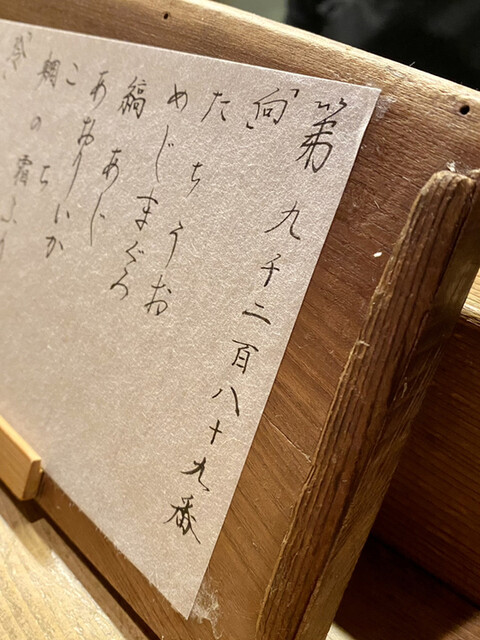 第九千二百八十九番
「向」
たちうお
めじまぐろ
縞あじ
あおりいか
こち
鯛の霜ふり